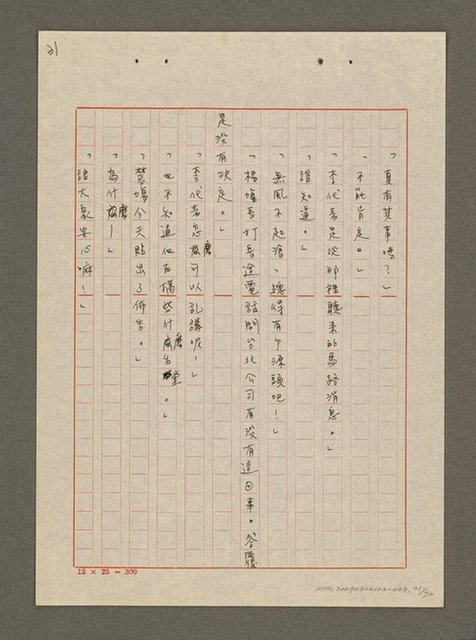 21
「真有其事嗎？」
「不能肯定。」
「李代表是從那裡聽來的馬路消息。」
「誰知道。」
「無風不起浪，總得有个源頭吧！」
「楊場長打長途電話問台北公司有沒有這回事。答覆
是沒有決定。」
「李代表怎麼可以乱講呢！」
「也不知道他在搞些什麼名堂。」
「營場今天貼出了佈告。」
「為什麼！」
「請大家安心嘛！」
12 × 25 = 300